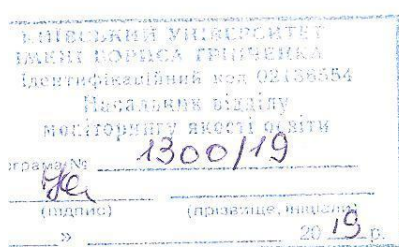 КИЇВСЬКИЙ УНІВЕРСИТЕТ
ІМЕНІ БОРИСА ГРІНЧЕНКА
Ідентифікаційний код 02136554
Начальник відділу
моніторингу якості освіти
рограма № 1300/19
(підпис) (прізвище, ініціали)
» 20 19 р.